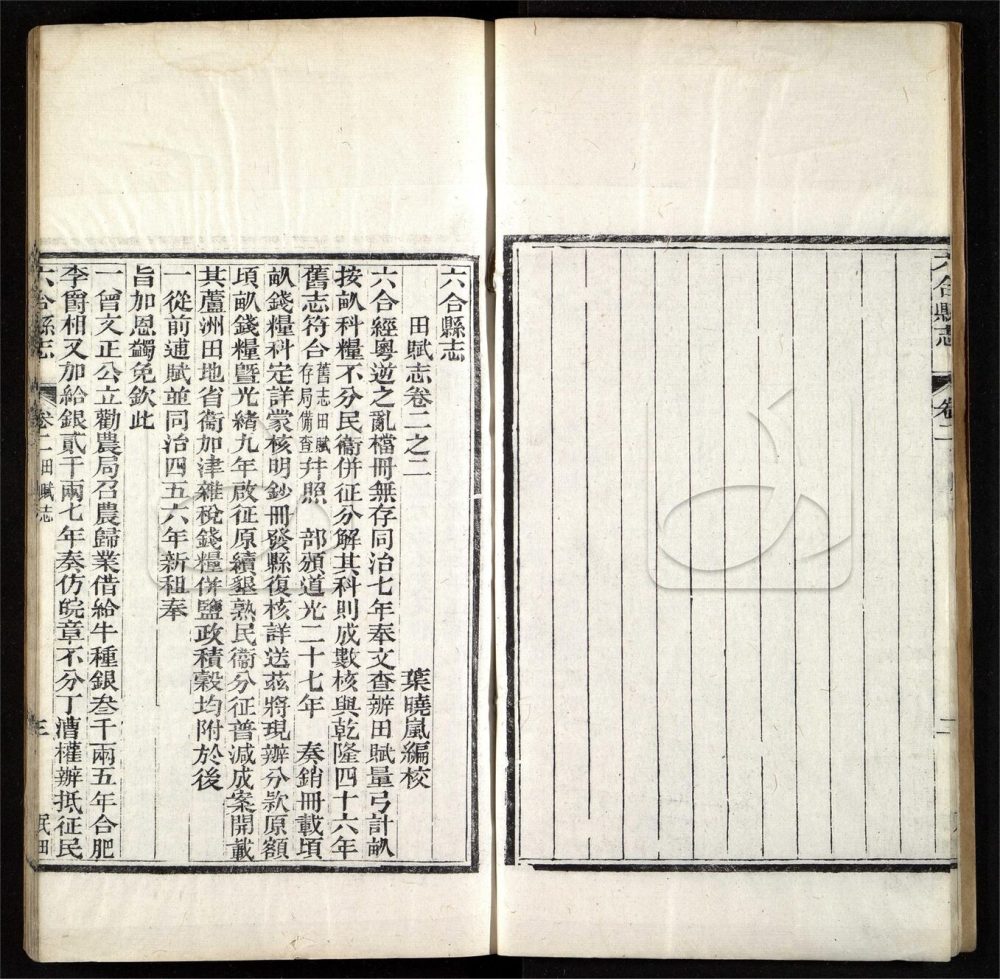 六合縣志
卷二
二
六合縣志
田賦志卷二之二
葉曉嵐編校
六合經粵逆之亂檔冊無存同治七年奉文查辦田賦量弓計畝
按畝科糧不分民衞併征分解其科則成數核與乾隆四十六年
舊志符合舊志田賦存局備查幷照 部頒道光二十七年 奏銷冊載頃
畝錢糧科定詳蒙核明鈔冊發縣復核詳送茲將現辦分款原額
頃畝錢糧曁光緖九年啟征原續墾熟民衞分征普減成案開載
其蘆洲田地省衞加津雜稅錢糧併鹽政積穀均附於後
一從前逋賦並同治四五六年新租奉
旨加恩蠲免欽此
一曾文正公立勸農局召農歸業借給牛種銀叁千兩五年合肥
李爵相又加給銀貳千兩七年奏仿皖章不分丁漕權辦抵征民
六合縣志
卷二田賦志
三
民田